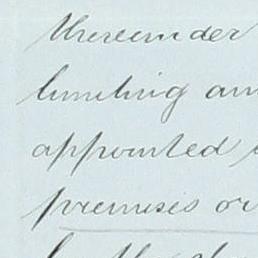 thereunder
limiting an
appointed
premises or